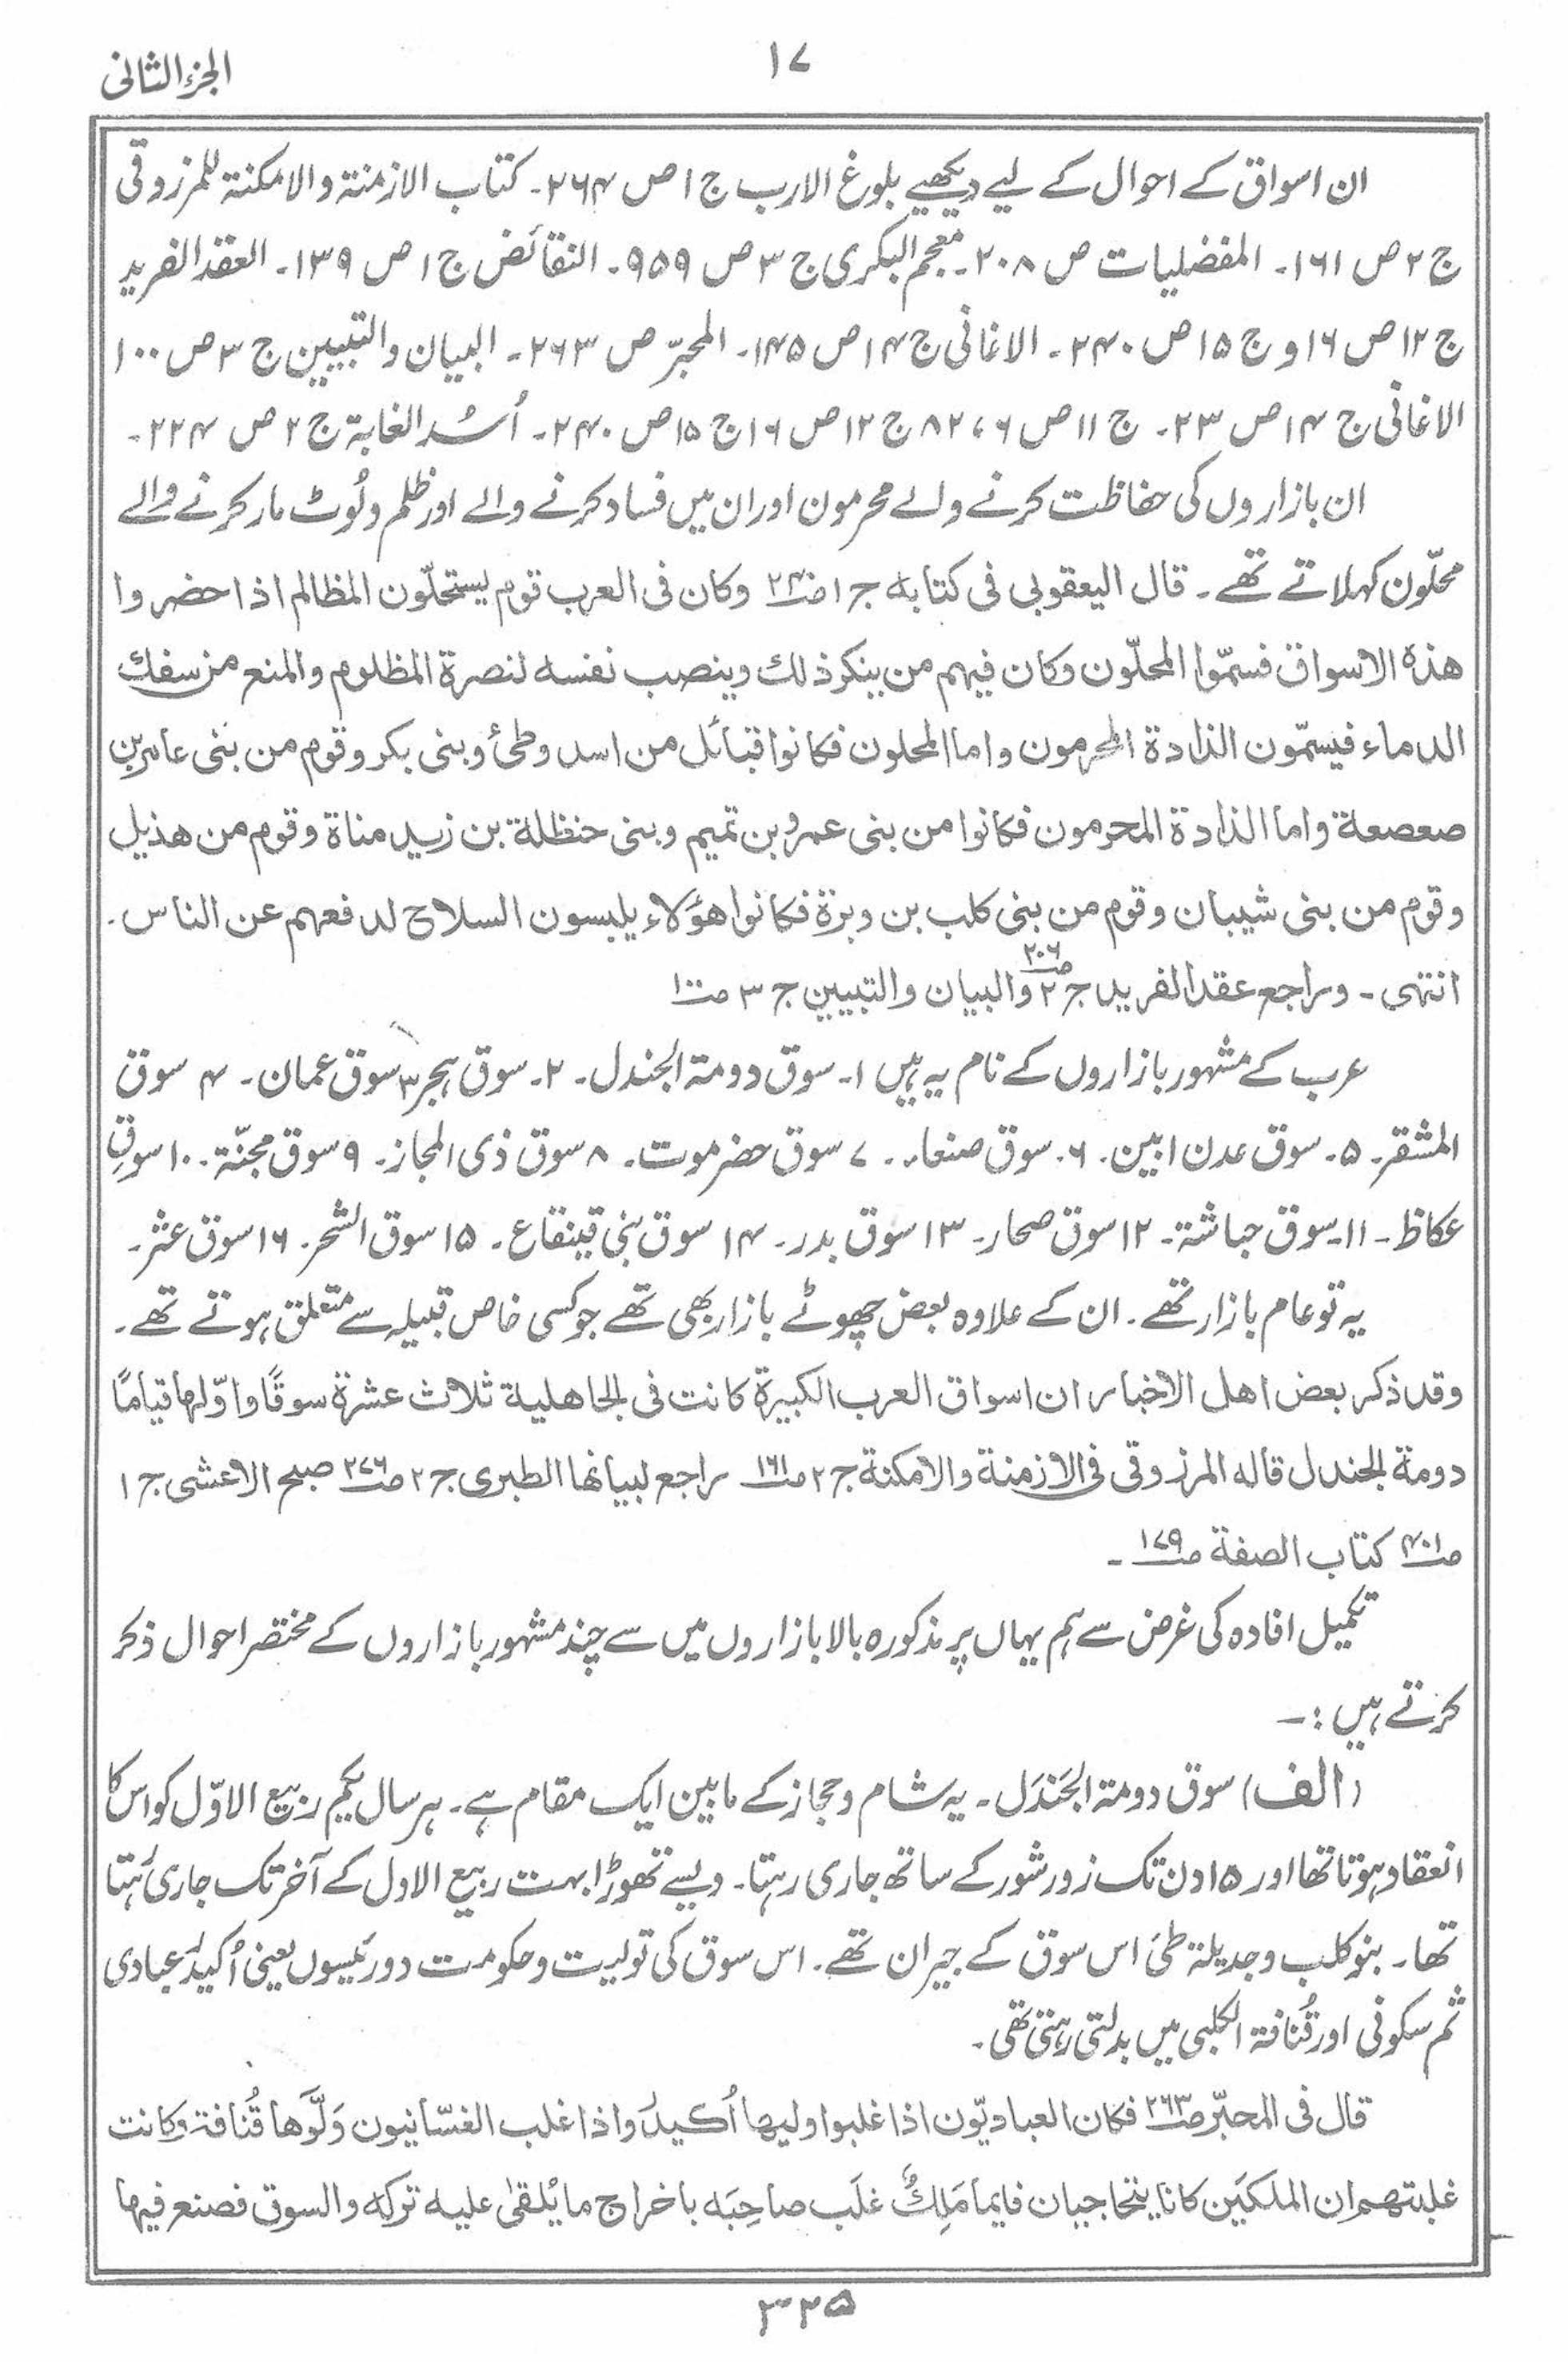 ۱۷
الجزء الثانی
ان اسواق کے احوال کے لیے دیکھیے بلوغ الارب ج ۱ ص ۲۶۴۔ کتاب الازمنۃ والامکنۃ للمرزوقی
ج ۲ ص ۱۶۱۔ المفضلیات ص ۲۰۸۔ معجم البکری ج ۳ ص ۹۵۹۔ النقائض ج ۱ ص ۱۳۹۔ العقد الفرید
ج ۱۲ ص ۱۶ و ج ۱۵ ص ۲۴۰۔ الاغانی ج ۱۴ ص ۱۴۵۔ المحبّر ص ۲۶۳۔ البیان والتبیین ج ۳ ص ۱۰۰
الاغانی ج ۱۴ ص ۲۳۔ ج ۱۱ ص ۶، ۸۲ ج ۱۲ ص ۱۶ ج ۱۵ ص ۲۴۰۔ اُسُد الغابۃ ج ۲ ص ۲۲۴۔
ان بازاروں کی حفاظت کرنے والے محرمون اور ان میں فساد کرنے والے اور ظلم و لُوٹ مار کرنے والے
محلّون کہلاتے تھے۔ قال الیعقوبی فی کتابہ ج ۱ ص ۲۴۰ وکان فی العرب قوم یستحلّون المظالم اذا حضروا
ھذہ الاسواق فسمّوا المحلّون وکان فیہم من ینکر ذلك وینصب نفسہ لنصرۃ المظلوم والمنع من سفك
الدماء فیسمّون الذادۃ المحرمون واما المحلون فکانوا قبائل من اسد وطئ وبنی بکر وقوم من بنی عامر بن
صعصعۃ واما الذادۃ المحرمون فکانوا من بنی عمرو بن تمیم وبنی حنظلۃ بن زید مناۃ وقوم من ھذیل
وقوم من بنی شیبان وقوم من بنی کلب بن وبرۃ فکانوا ھؤلاء یلبسون السلاح لدفعہم عن الناس۔
انتہی۔ وراجع عقد الفرید ج ۲ ص ۲۰۶ والبیان والتبیین ج ۳ ص ۱۰۰
عرب کے مشہور بازاروں کے نام یہ ہیں ۱۔ سوق دومۃ الجندل۔ ۲۔ سوق ہجر ۳ سوق عمان۔ ۴ سوق
المشقر۔ ۵۔ سوق عدن ابین۔ ۶۔ سوق صنعاء۔ ۷ سوق حضرموت۔ ۸ سوق ذی المجاز۔ ۹ سوق مجنّۃ۔ ۱۰ سوقِ
عکاظ۔ ۱۱۔ سوق حباشۃ۔ ۱۲ سوق صحار۔ ۱۳ سوق بدر۔ ۱۴ سوق بنی قینقاع۔ ۱۵ سوق الشحر۔ ۱۶ سوق عثر۔
یہ تو عام بازار تھے۔ ان کے علاوہ بعض چھوٹے بازار بھی تھے جو کسی خاص قبیلہ سے متعلق ہوتے تھے۔
وقد ذکر بعض اھل الاخبار ان اسواق العرب الکبیرۃ کانت فی الجاھلیۃ ثلاث عشرۃ سوقًا واوّلہا قیامًا
دومۃ الجندل قالہ المرزوقی فی الازمنۃ والامکنۃ ج ۲ ص ۱۶۱ راجع لبیانھا الطبری ج ۲ ص ۲۷۶ صبح الاعشی ج ۱
ص ۴۰۱ کتاب الصفۃ ص ۱۷۹۔
تکمیل افادہ کی غرض سے ہم یہاں پر مذکورہ بالا بازاروں میں سے چند مشہور بازاروں کے مختصر احوال ذکر
کرتے ہیں :۔
(الف) سوق دومۃ الجَندَل۔ یہ شام و حجاز کے مابین ایک مقام ہے۔ ہر سال یکم ربیع الاوّل کو اس کا
انعقاد ہوتا تھا اور ۱۵ دن تک زور شور کے ساتھ جاری رہتا۔ ویسے تھوڑا بہت ربیع الاول کے آخر تک جاری رہتا
تھا۔ بنو کلب و جدیلۃ طئ اس سوق کے جیران تھے۔ اس سوق کی تولیت و حکومت دو رئیسوں یعنی اُکیدر عبادی
ثم سکونی اور قُنافۃ الکلبی میں بدلتی رہتی تھی۔
قال فی المحبّر ص ۲۶۳ فکان العبادیّون اذا غلبوا ولیہا اُکیدر واذا غلب الغسّانیون وَلَّوھا قُنافۃ وکانت
غلبتھم ان الملکَین کانا یتحاجیان فایما مَلِكٌ غلَب صاحِبَہ باخراج ما یُلقیٰ علیہ ترکہ والسوق فصنع فیہا
۳۲۵